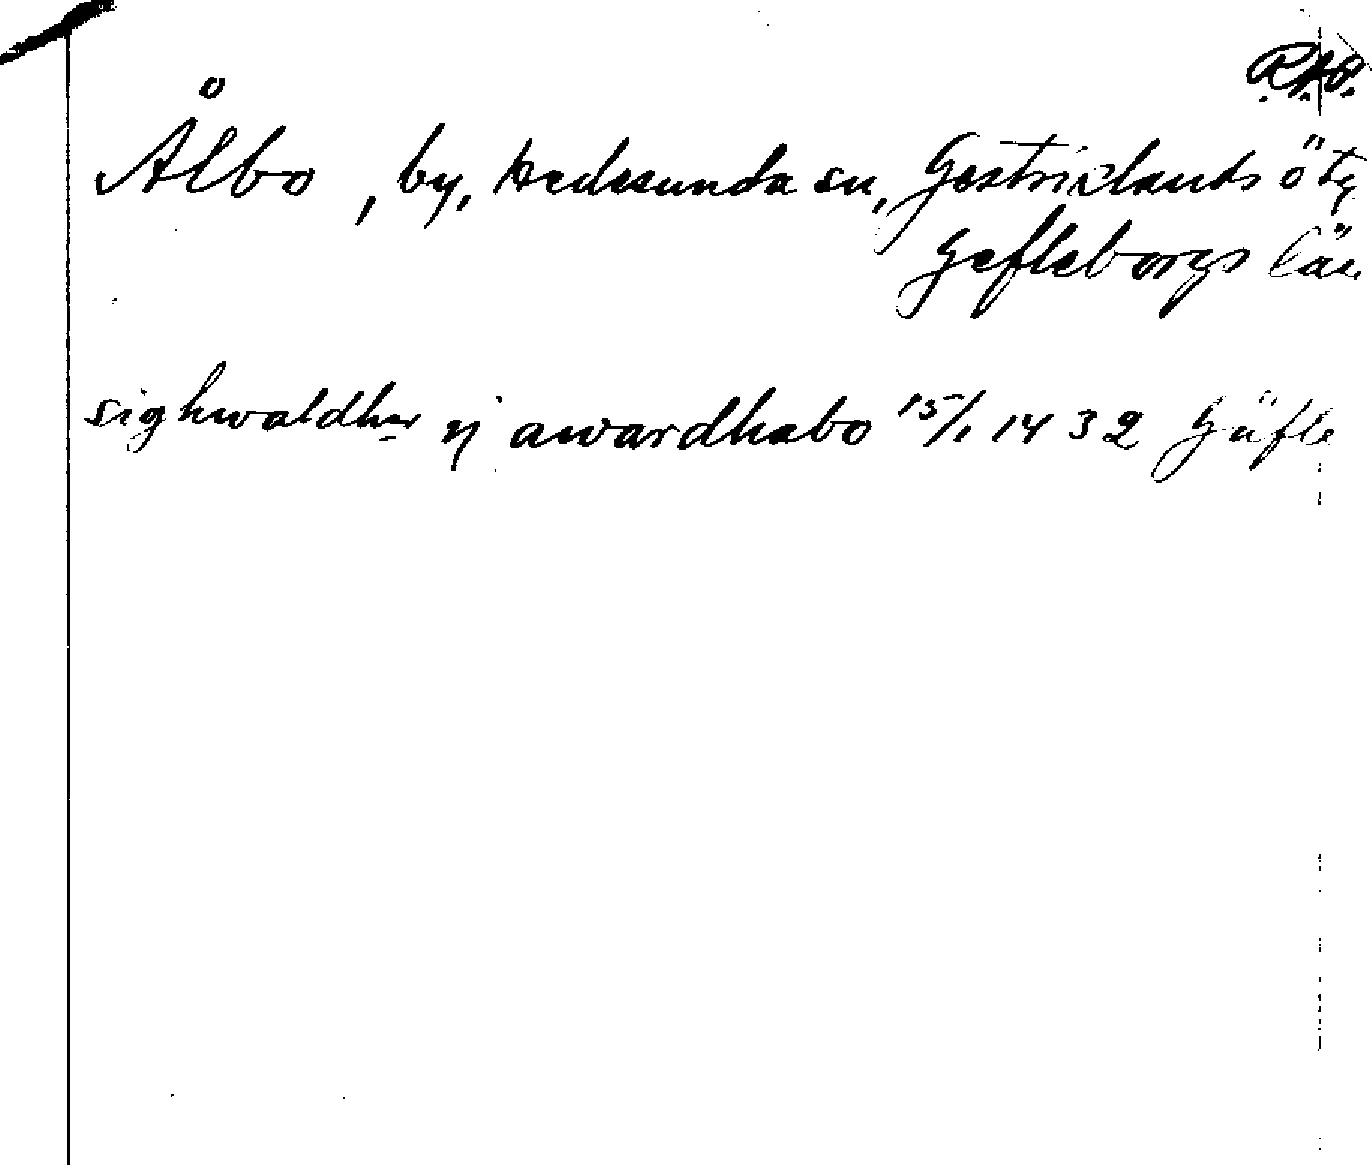 R.A.O.
Ålbo, by, Hedesunda sn, Gestriklands ö tg
Gefleborgs län
sighwaldher ij awardhabo 15/1 1432 Gäfle